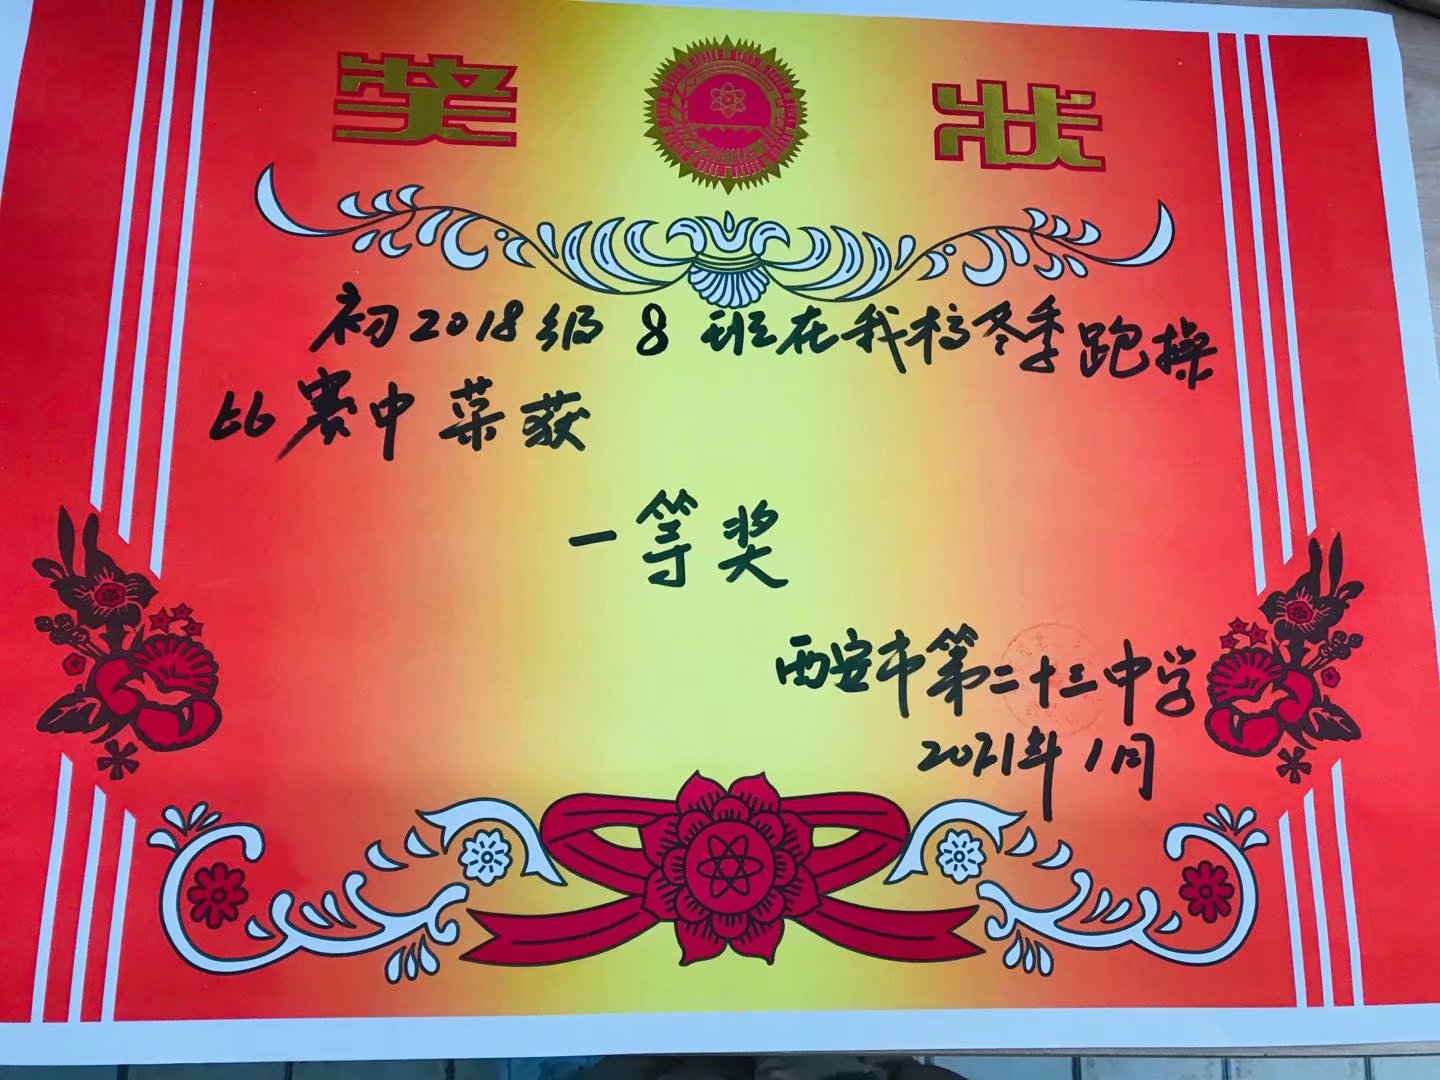 奖状
初2018级8班在我校冬季跑操
比赛中荣获
一等奖
西安市第二十三中学
2021年1月